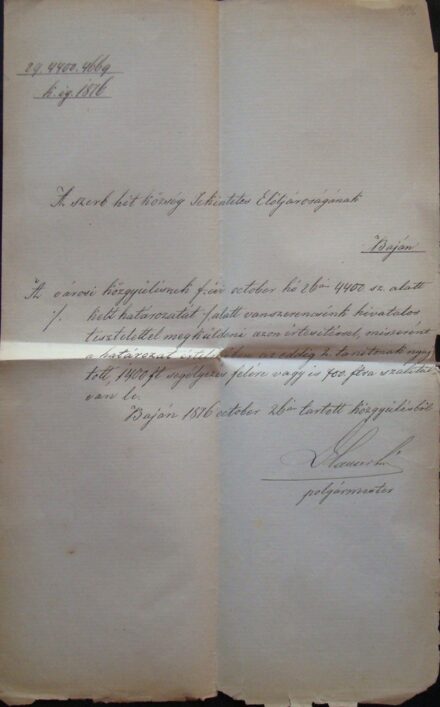 4400.4669
k. ig. 1876
A szerb hit község Tekintetes Elöljáróságának
Baján
Az városi közgyülésnek f. évi october hó 26án 4400 sz. alatt
kelt határozatát ·/. alatt van szerencsénk hivatalos
tisztelettel megküldeni azon értesitéssel, miszerint
a határozat az eddig tanitóknak
tott, 1400 ft segélyezés felére vagy is 700 ftra
van le.
Baján 1876 october 26án tartott közgyülésből
polgármester